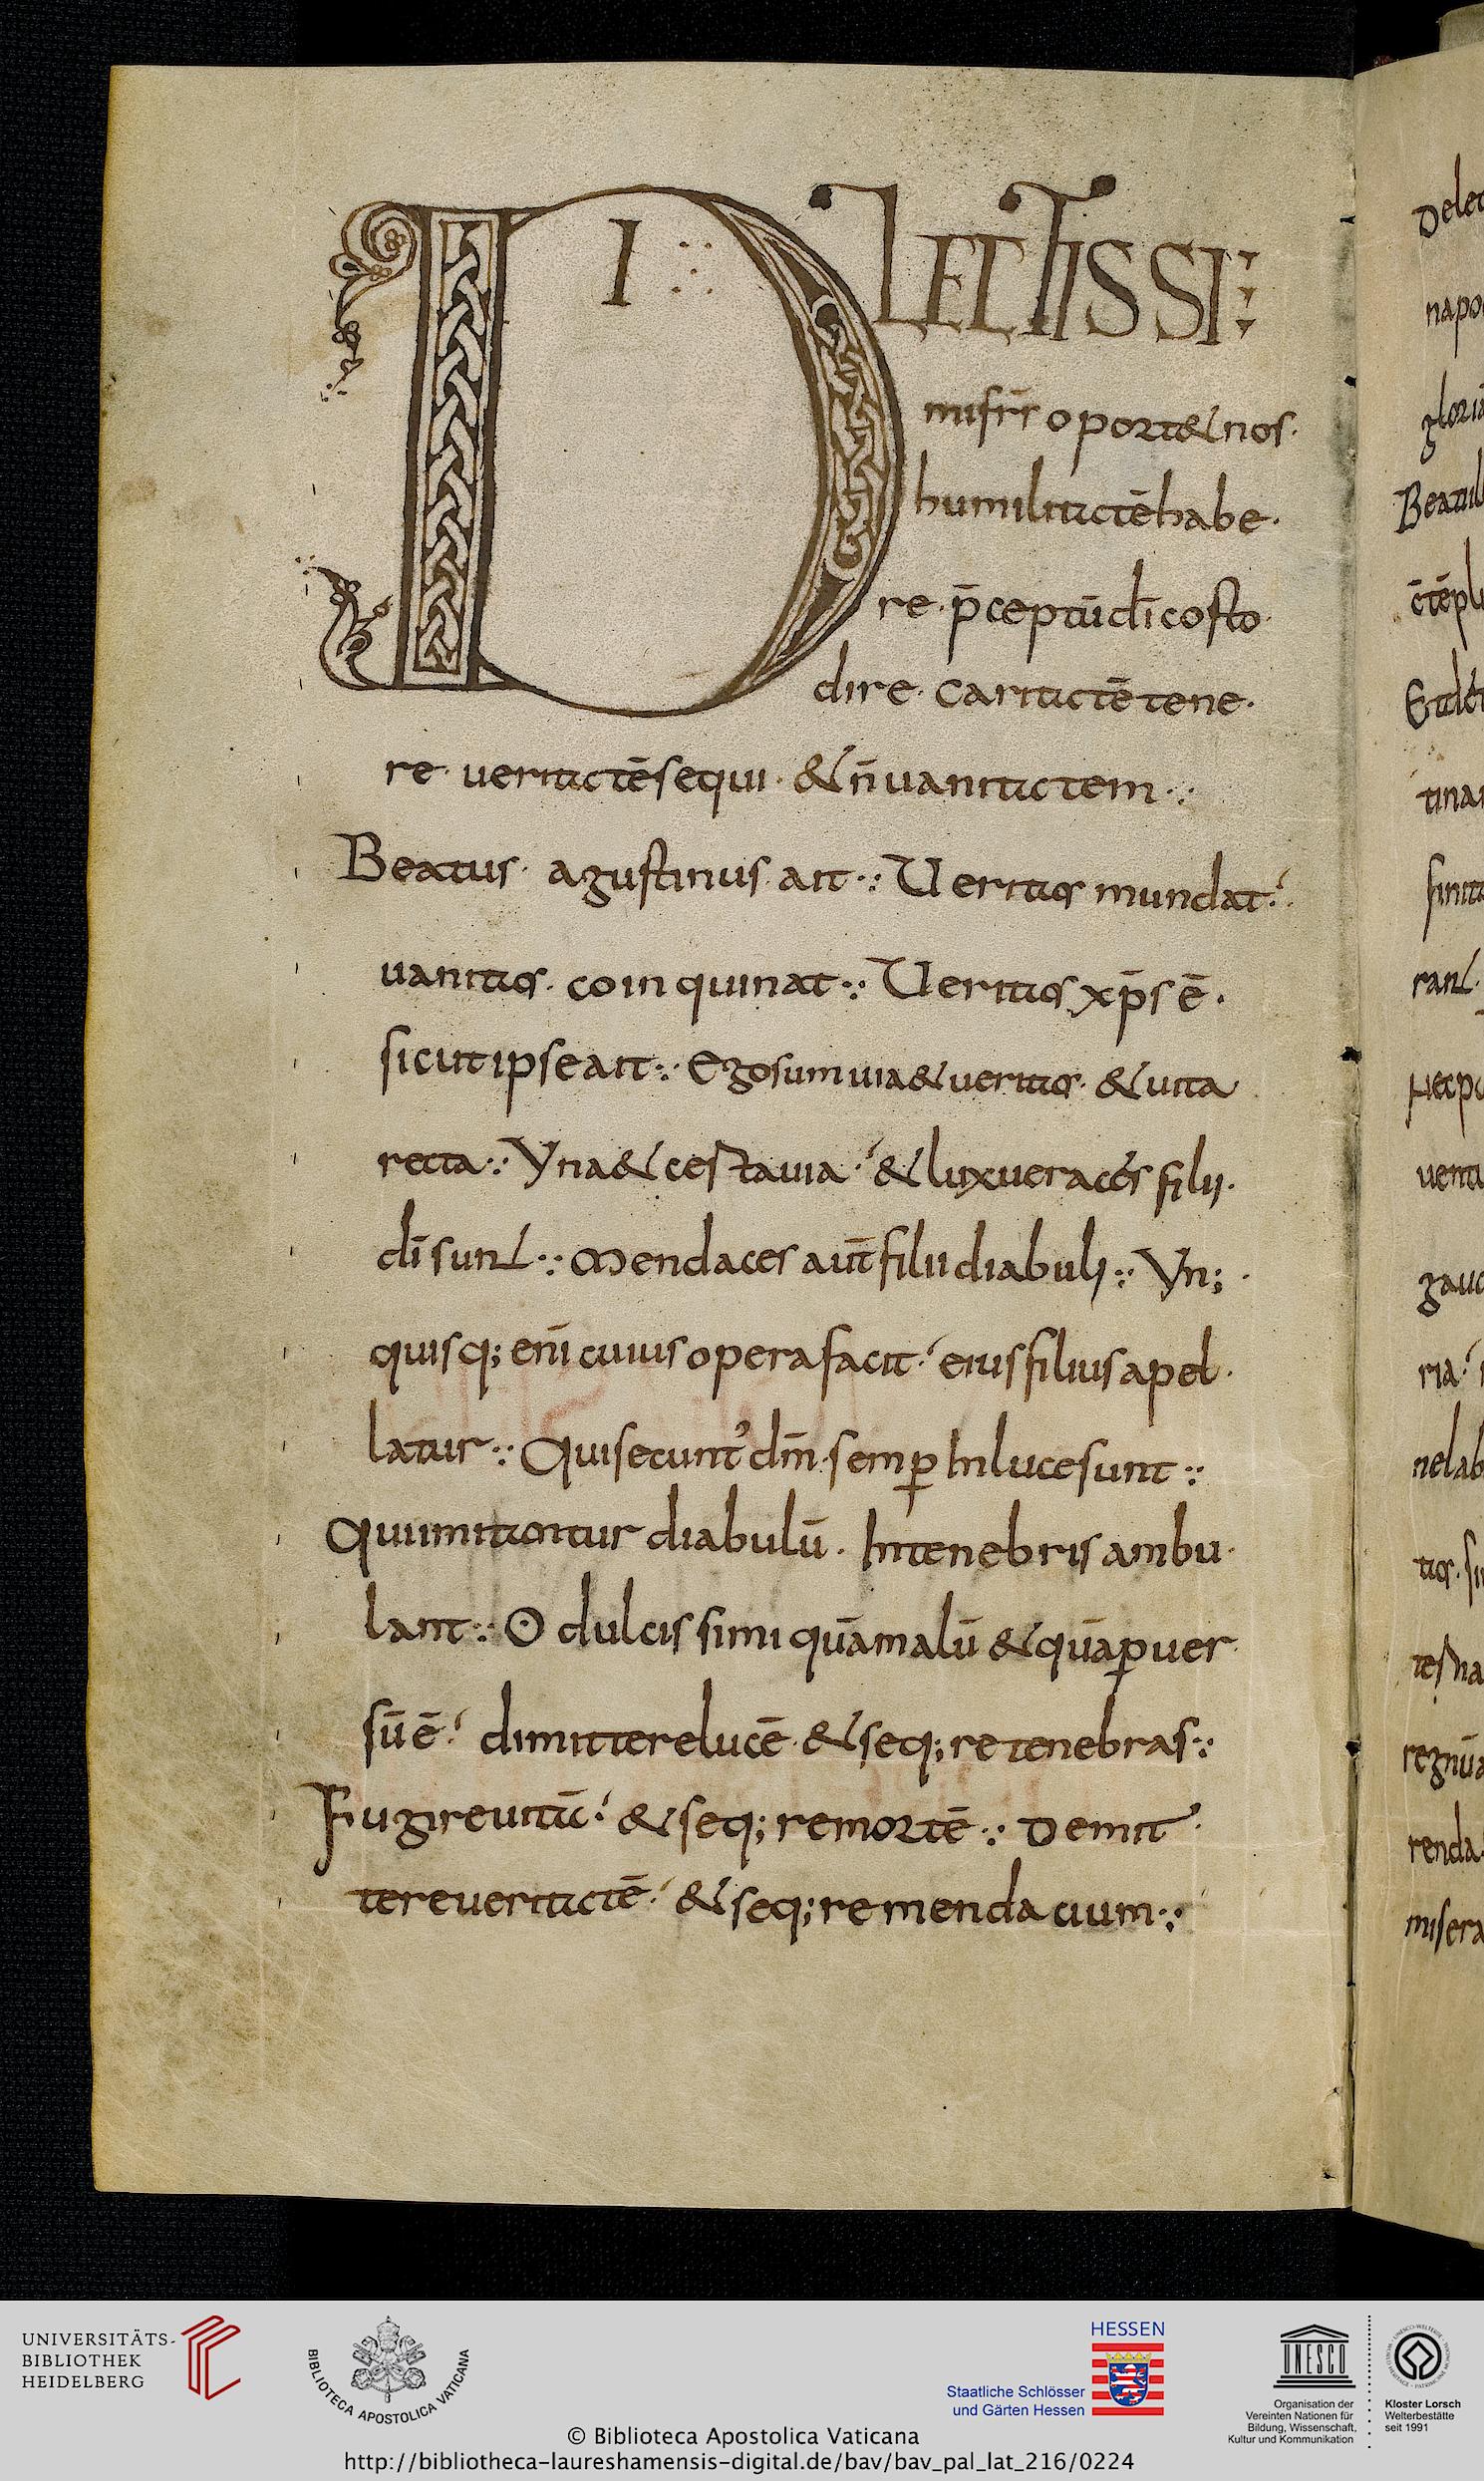 DI ∴ LECTISSI
mi fr̄s oport& nos·
humilitatē habe·
re· p̄ceptū dī costo·
dire· caritatē tene·
re· ueritatē sequi· & n̄ uanitatem·:
Beatus· agustinus· ait·: Ueritas mundat·
uanitas· coinquinat·: Ueritas xp̄s ē·
sicut ipse ait·: Ego sum uia & ueritas· & uita
recta·: Yna & cesta uia· & lux ueraces filii·
dī sunt·: Mendaces aut̄ filii diabuli·: Yn;
quisq; enī cuius opera facit· eius filius apel·
latur·: Qui secunt᾽ dm̄· semꝑ In luce sunt·:
Qui imitantur diabulū· In tenebris ambu·
lant·: O dulcissimi quā malū & quā ꝑuer·
sū ē· dimittere lucē· & seq;re tenebras·:
Fugire uitā· & seq;re mortē·: Demit·
tere ueritatē· & seq;re mendacium·:
Delec
napo
gloria
Beatul
tinar
sinita
rant·
uenta
gauc
ria·
nelab
tas· si
regnū a
renda
misera
UNIVERSITÄTS-
BIBLIOTHEK
HEIDELBERG
BIBLIOTECA APOSTOLICA VATICANA
HESSEN
Staatliche Schlösser
und Gärten Hessen
UNESCO
Organisation der
Vereinten Nationen für
Bildung, Wissenschaft,
Kultur und Kommunikation
Kloster Lorsch
Welterbestätte
seit 1991
© Biblioteca Apostolica Vaticana
http://bibliotheca-laureshamensis-digital.de/bav/bav_pal_lat_216/0224